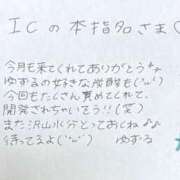 ICの本指名さま
今月も来てくれてありがとう
ゆずるの好きな炭酸も(˙ᵕ˙)
今回もたくさん責めてくれて、
開発されちゃいそう!!(笑)
また沢山水分とっておくね
待ってるよ(˙ᵕ˙) ゆずる